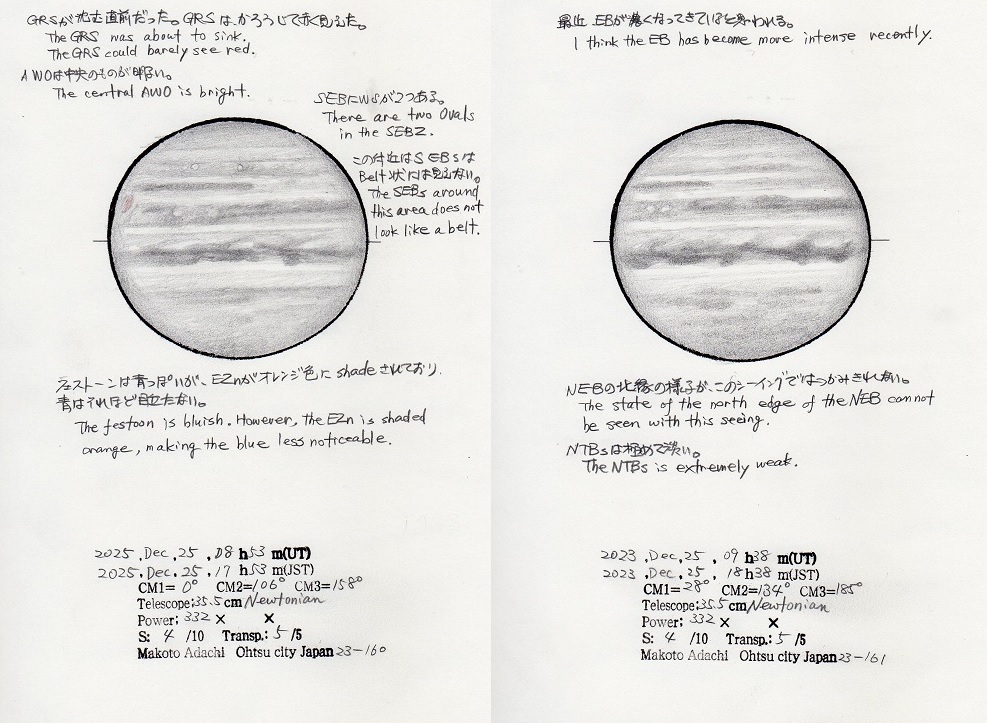 GRSが沈む直前だった。GRSは、かろうじて赤く見えた。
The GRS was about to sink.
The GRS could barely see red.
AWOは中央のものが明るい。
The central AWO is bright.
SEBにWSが2つある。
There are two Ovals
in the SEBZ.
この付近はSEBsは
Belt状には見えない。
The SEBs around
this area does not
look like a belt.
フェストーンは青っぽいが、EZnがオレンジ色にshadeされており、
青はそれほど目立たない。
The festoon is bluish. However, the EZn is shaded
orange, making the blue less noticeable.
2025, Dec, 25, 08 h 53 m(UT)
2025, Dec, 25, 17 h 53 m(JST)
CM1= 0° CM2=106° CM3=158°
Telescope:35.5cm Newtonian
Power: 332 × ×
S: 4 /10 Transp.: 5 /5
Makoto Adachi Ohtsu city Japan 23-160
最近、EBが濃くなってきていると思われる。
I think the EB has become more intense recently.
NEBの北縁の様子が、このシーイングではつかみきれない。
The state of the north edge of the NEB cannot
be seen with this seeing.
NTBsは極めて淡い。
The NTBs is extremely weak.
2023, Dec, 25, 09 h 38 m(UT)
2023, Dec, 25, 18 h 38 m(JST)
CM1=28° CM2=134° CM3=185°
Telescope:35.5cm Newtonian
Power: 332 × ×
S: 4 /10 Transp.: 5 /5
Makoto Adachi Ohtsu city Japan 23-161